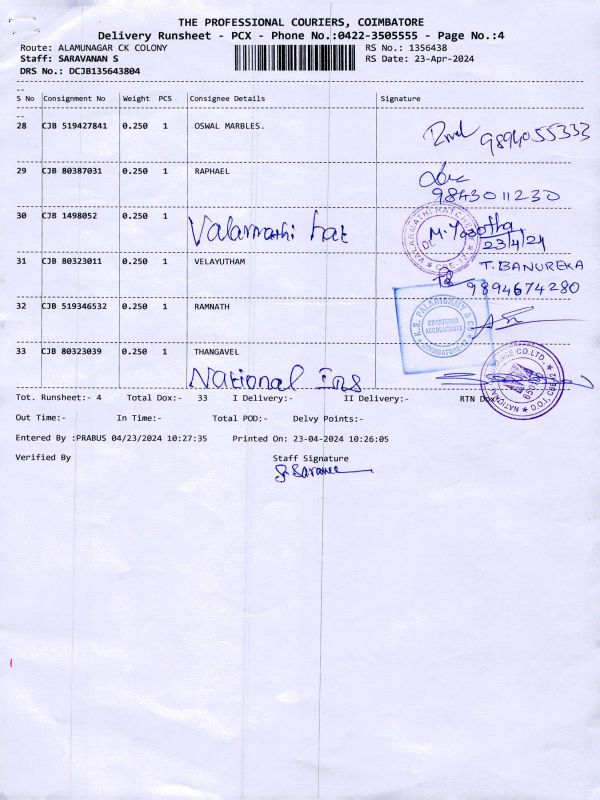 THE PROFESSIONAL COURIERS, COIMBATORE
Delivery Runsheet - PCX - Phone No.:0422-3505555 - Page No.:4
Route: ALAMUNAGAR CK COLONY RS No.: 1356438
Staff: SARAVANAN S RS Date: 23-Apr-2024
DRS No.: DCJB135643804
S No Consignment No Weight PCS Consignee Details Signature
28 CJB 519427841 0.250 1 OSWAL MARBLES.
9894055333
29 CJB 80387031 0.250 1 RAPHAEL
9843011230
30 CJB 1498052 0.250 1 Valarmathi hat M. Yasotha
23/4/24
31 CJB 80323011 0.250 1 VELAYUTHAM T. BANUREKA
9894674280
32 CJB 519346532 0.250 1 RAMNATH
CHARTERED
ACCOUNTANTS
COIMBATORE-12
33 CJB 80323039 0.250 1 THANGAVEL
National Ins
Tot. Runsheet:- 4 Total Dox:- 33 I Delivery:- II Delivery:- RTN Dox:-
Out Time:- In Time:- Total POD:- Delvy Points:-
Entered By :PRABUS 04/23/2024 10:27:35 Printed On: 23-04-2024 10:26:05
Verified By Staff Signature